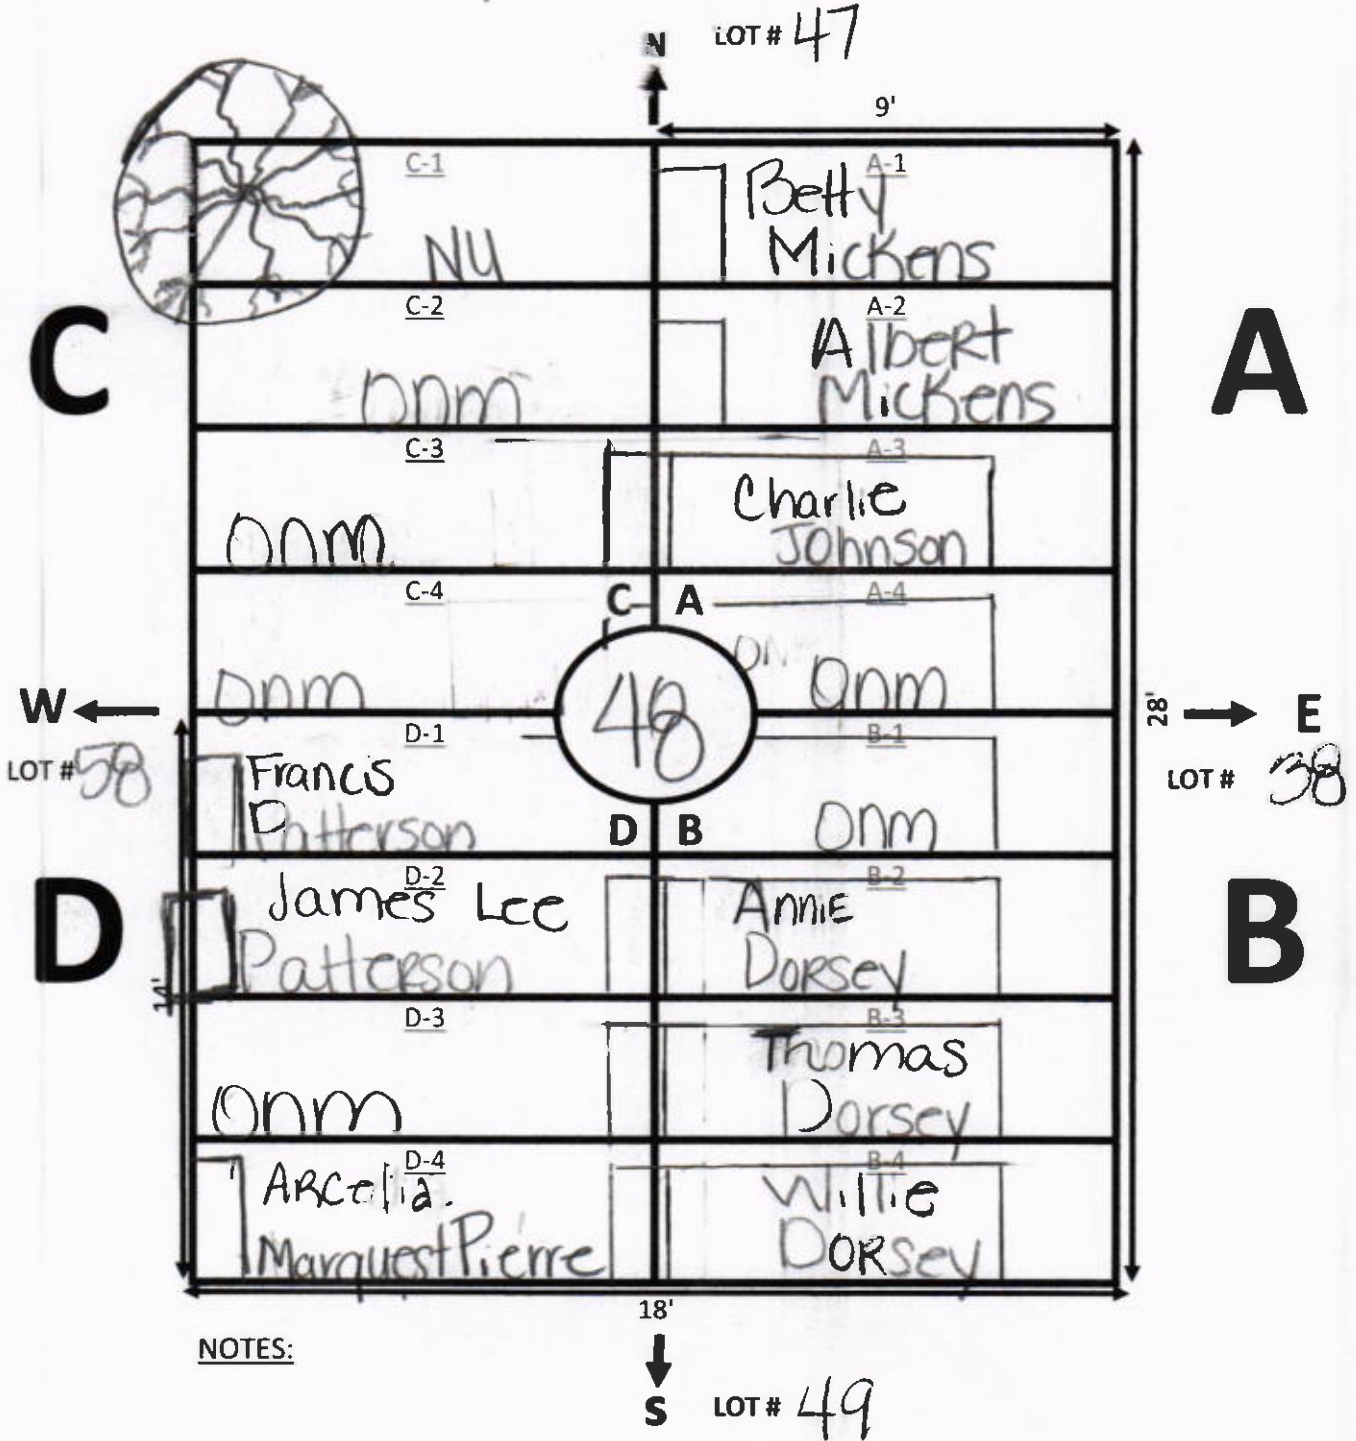 LOT # 47
N
9'
C-1
NU
A-1
Betty
Mickens
C-2
onm
A-2
Albert
Mickens
C
A
C-3
onm
A-3
Charlie
Johnson
C-4
onm
C A
A-4
ON
onm
48
W
28'
E
LOT # 58
LOT # 38
D-1
Francis
Patterson
B-1
onm
D B
D-2
James Lee
Patterson
B-2
Annie
Dorsey
D
B
14'
D-3
onm
B-3
Thomas
Dorsey
D-4
Arcelia.
Marquest Pierre
B-4
Willie
Dorsey
18'
NOTES:
S
LOT # 49